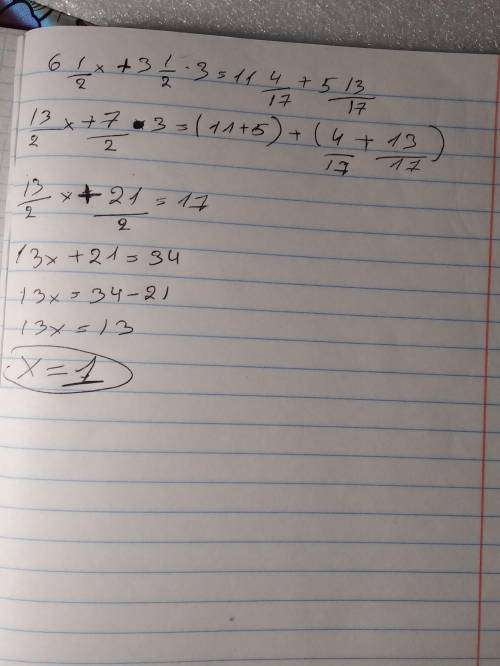 6 1/2 x + 3 1/2 · 3 = 11 4/17 + 5 13/17
13/2 x + 7/2 · 3 = (11+5) + (4/17 + 13/17)
13/2 x + 21/2 = 17
13x + 21 = 34
13x = 34 - 21
13x = 13
x = 1